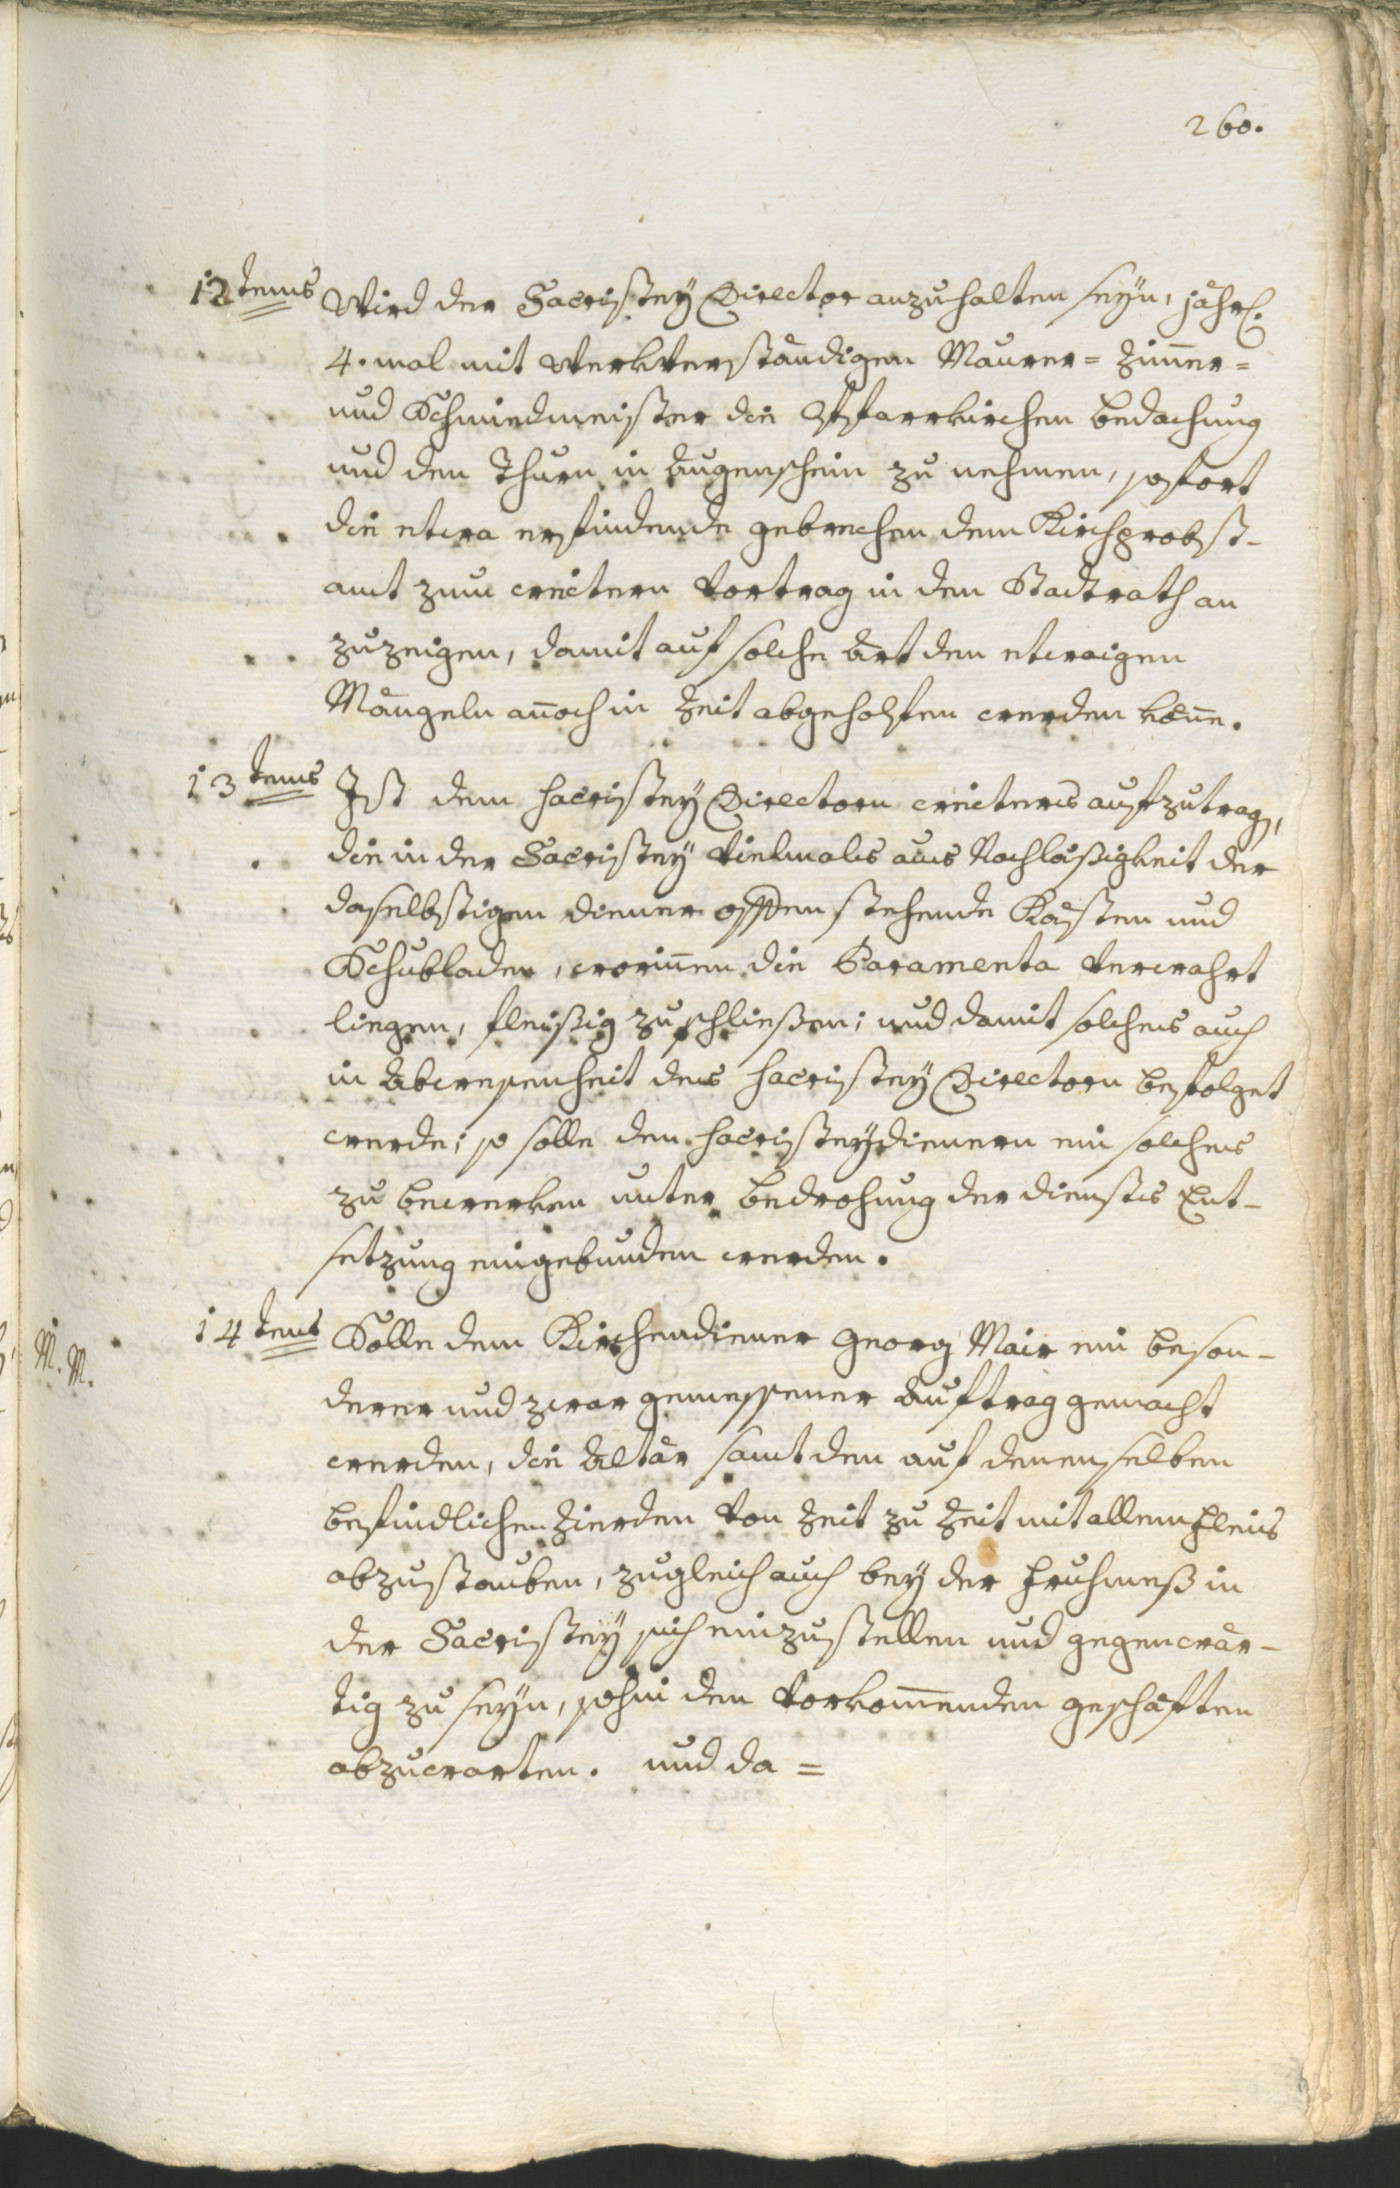 260.
12tens Wird der Sacristey Director anzuhalten seyn, jährl.
4. mal mit Werkverständigen Maurer= Zim̄er=
und Schmiedmeister die Pfarrkirchen Bedachung
und den Thurn in Augenschein zu nehmen, sofort
die etwa erfindende gebrechen dem Kirchprobst-
amt zum weitern Vortrag in dem Stadtrath an
zuzeigen, damit auf solche Art den etwaigen
Mängeln an̄och in Zeit abgeholfen werden kön̄e.
13tens Ist dem Sacristey Directorn weiters aufzutragen,
die in der Sacristey vielmals aus Nachläßigkeit der
daselbstigen diener offen stehende Kästen und
Schubladen, worin̄en die Paramenta verwahrt
liegen, fleißig zu schließen; und damit solches auch
in Abwesenheit des Sacristey Directorn befolget
werde; so solle den Sacristeydienern ein solches
zu bewerken unter Bedrohung der dienstes Ent-
setzung eingebunden werden.
M. M.
14tens Solle dem Kirchendiener Georg Mair ein beson-
derer und zwar gemessener Auftrag gemacht
werden, die Altär samt den auf denenselben
befindlichen Zierden von Zeit zu Zeit mit allem Fleis
abzustauben, zugleich auch bey der Fruhmeß in
der Sacristey sich einzustellen und gegenwär-
tig zu seyn, sohin den vorkom̄enden geschäften
abzuwarten. und da=